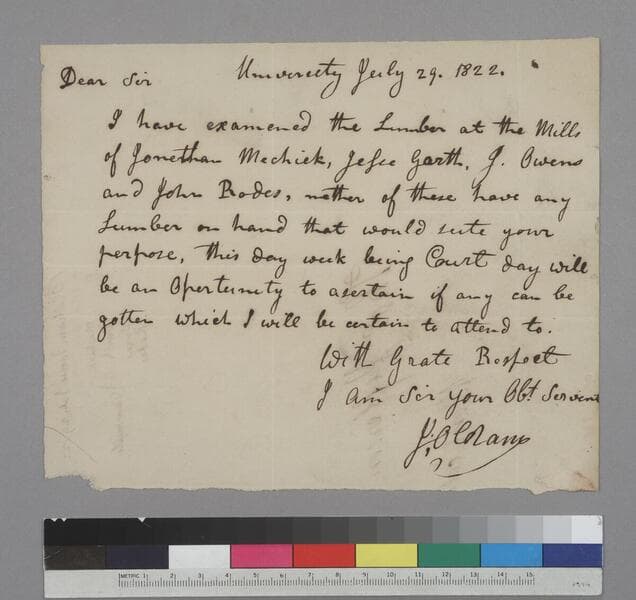 Dear Sir University July 29. 1822.
I have examened the Lumber at the Mills
of Jonethan Mechiek, Jesse Garth, J. Owens
and John Rodes, nather of these have any
Lumber on hand that would sute your
perpose, this day week being Court day will
be an Opertunity to asertain if any can be
gotten which I will be certain to attend to.
With Grate Respect
I am Sir your Obt. Servent
J; Oldham
METRIC 1 2 3 4 5 6 7 8 9 10 11 12 13 14 15